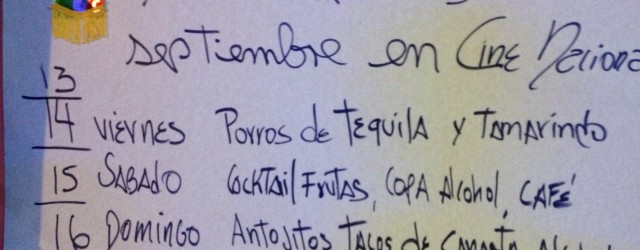 septiembre en Cine Naciona
13
14 viernes Porros de Tequila y Tamarindo
15 SABADO Cocktail Frutas, Copa Alcohol, CAFÉ
16 Domingo Antojitos Tacos de